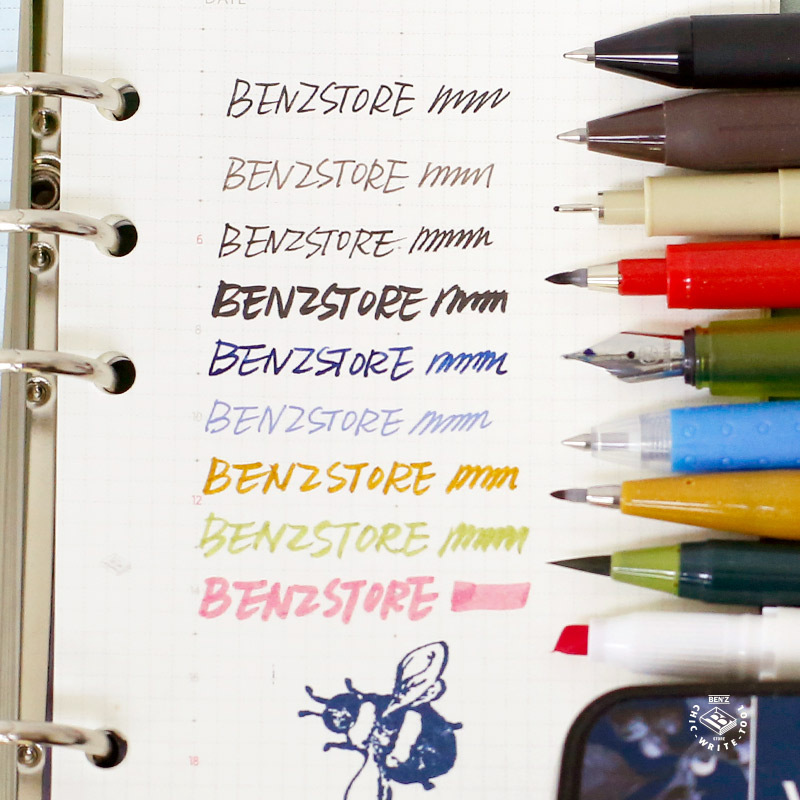 DATE
BENZSTORE
BENZSTORE
6
BENZSTORE
BENZSTORE
8
BENZSTORE
10
BENZSTORE
BENZSTORE
12
BENZSTORE
14
BENZSTORE
16
18
BEN'Z
STORE
CHIC-WRITE-TOO